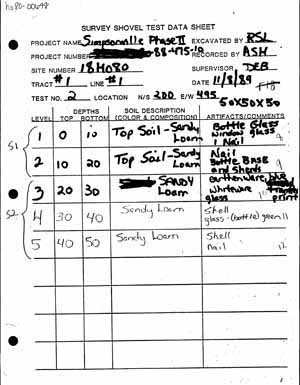 ho80-00648
SURVEY SHOVEL TEST DATA SHEET
PROJECT NAME Simpsonville Phase II EXCAVATED BY RSL
PROJECT NO. 88-475-10 RECORDED BY ASH
SITE NUMBER 18HO80 SUPERVISOR DEB
TRACT #1 LINE #1 DATE 11/8/89 F18
TEST NO. 2 LOCATION N/S 300 E/W 495
50x50x50
LEVEL DEPTHS TOP BOTTOM SOIL DESCRIPTION (COLOR & COMPOSITION) ARTIFACTS/COMMENTS
S1
1 0 10 Top Soil-Sandy Loam Bottle Glass
window glass
1 Nail
2 10 20 Top Soil-Sandy Loam Nail
Bottle Base
and Sherds
S2
3 20 30 SANDY Loam earthenware, blue
whiteware transfer print
glass
4 30 40 Sandy Loam Shell
glass-(bottle) green 11
5 40 50 Sandy Loam Shell
Nail 12